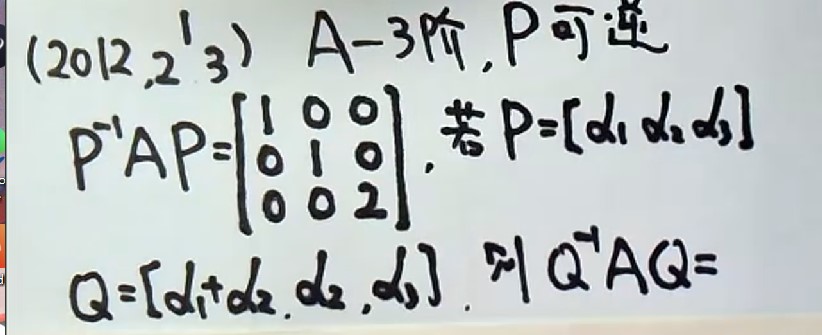 (2012,2'3) A-3阶,P可逆
P⁻¹AP=[1 0 0; 0 1 0; 0 0 2],若P=[α₁ α₂ α₃]
Q=[α₁+α₂,α₂,α₃].则Q⁻¹AQ=